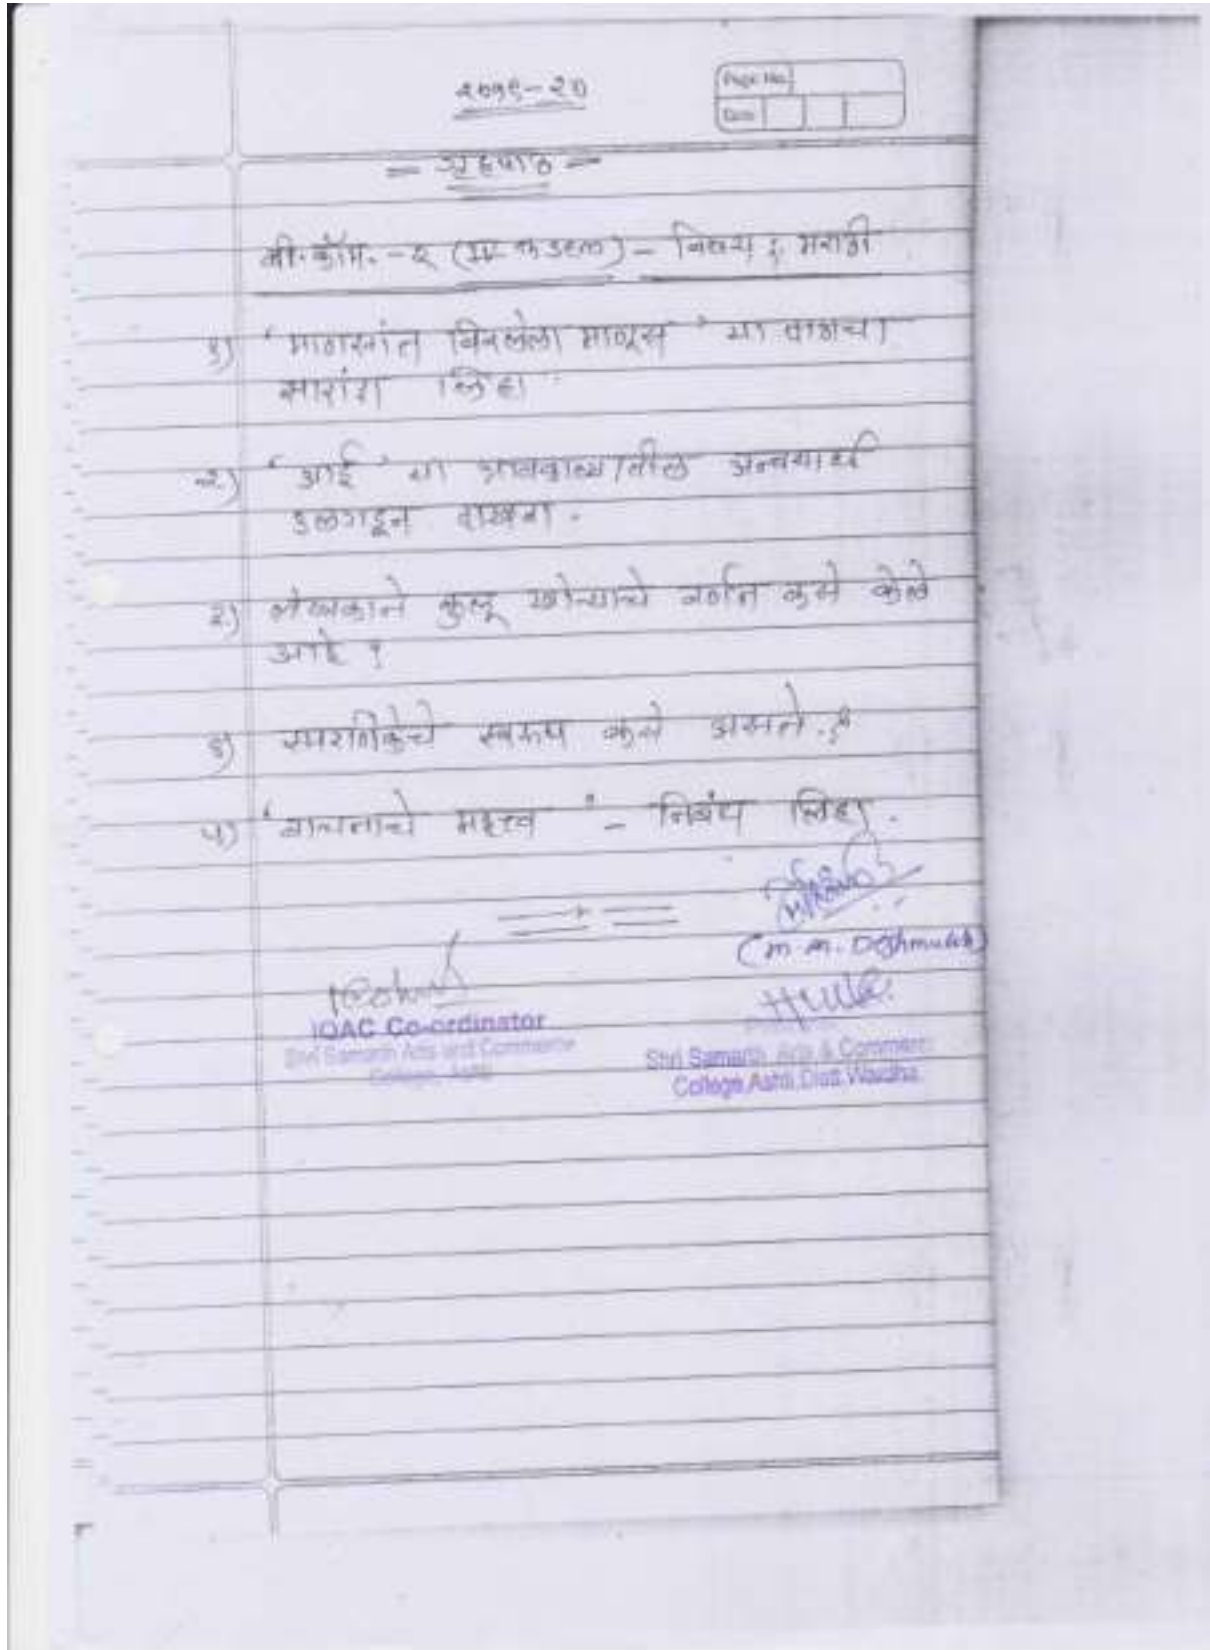 २०१९-२०
Page No.
Date
- गृहपाठ -
बी.कॉम. -२ (IV) - विषय : मराठी
१) 'माणसांत विरलेला माणूस' या पाठाचा
सारांश लिहा.
२) 'आई' या भावकाव्यातील अन्वयार्थ
उलगडून दाखवा.
३) लेखकाने कुलू खोऱ्याचे वर्णन कसे केले
आहे ?
४) स्मरणिकेचे स्वरूप कसे असते ?
५) 'वाचनाचे महत्त्व' - निबंध लिहा.
(M. M. Deshmukh)
IQAC Co-ordinator
Shri Samarth Arts and Commerce
College, Ashti
Shri Samarth Arts & Commerc
College, Ashti, Dist. Wardha